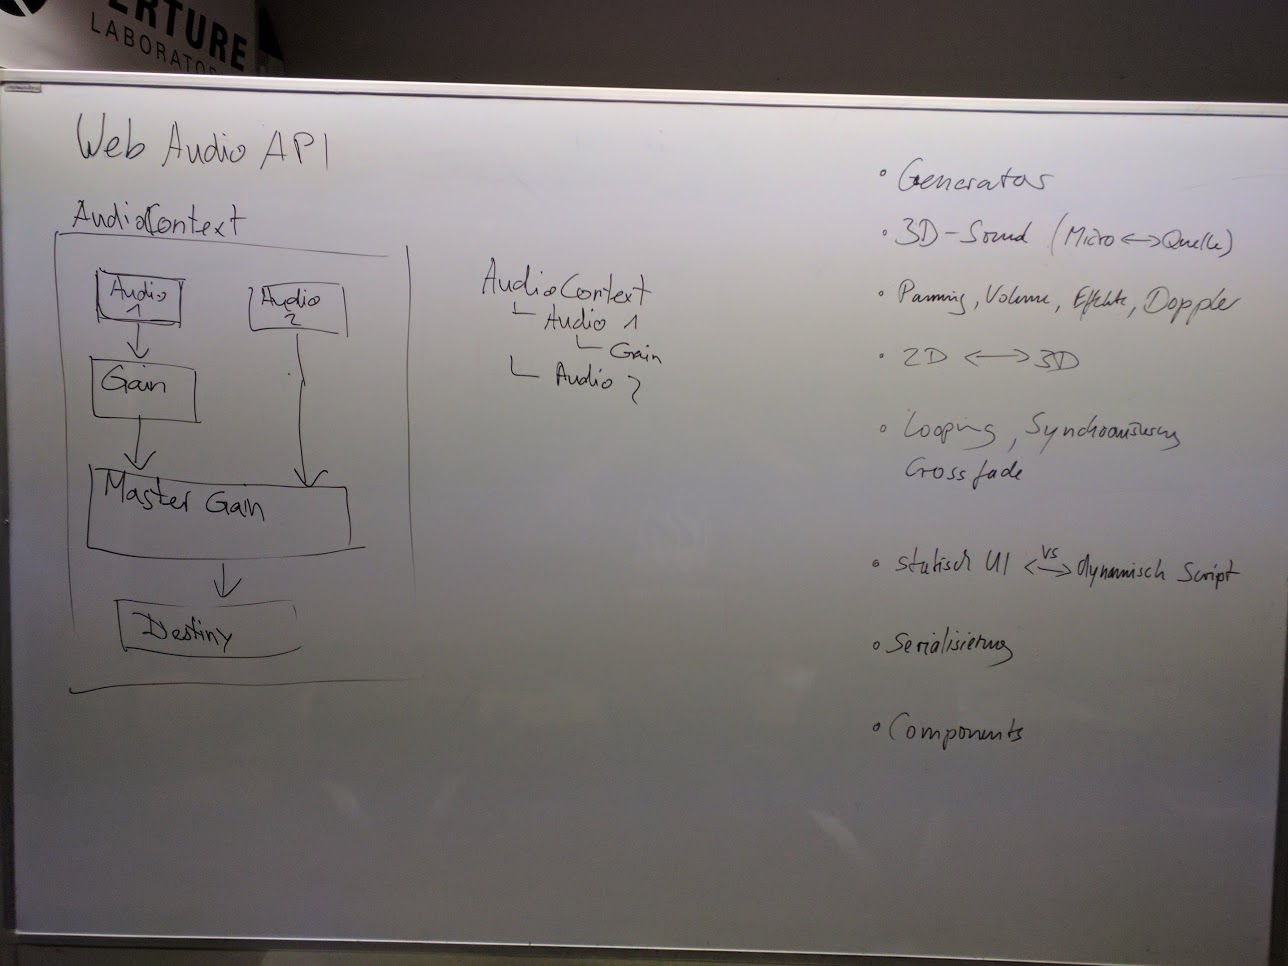 ERTURE
LABORATO
Web Audio API
AudioContext
Audio
1
Audio
2
Gain
Master Gain
Destiny
AudioContext
Audio 1
Gain
Audio 2
• Generator
• 3D-Sound (Micro <-> Quelle)
• Panning, Volume, Effekte, Doppler
• 2D <-> 3D
• Looping, Synchronisierung
Crossfade
• statisch UI <-> vs dynamisch Script
• Serialisierung
• Components